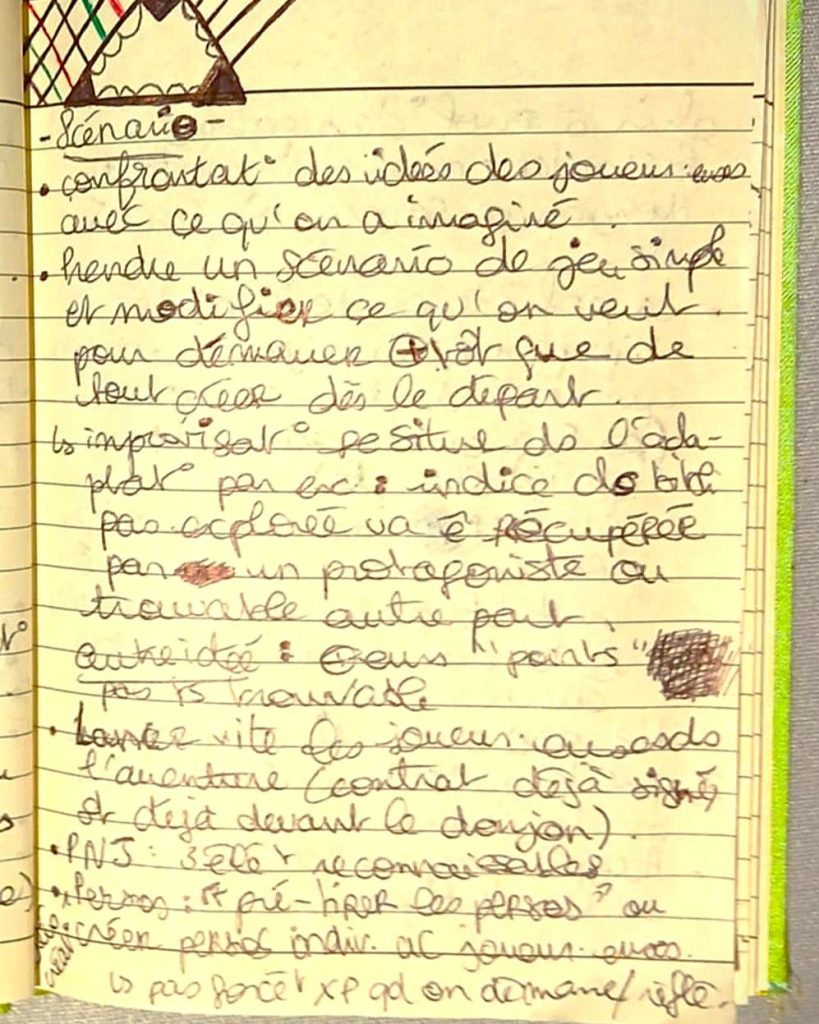 - Scénario -
• confrontat° des idées des joueur·euses
avec ce qu'on a imaginé.
• Prendre un scénario de jeu simple
et modifier ce qu'on veut
pour démarrer ⊕tôt que de
tout créer dès le départ.
↳ improvisat° se situe ds l'ada-
ptat° par ex : indice ds bibli
pas explorée va ê récupérée
par un protagoniste ou
trouvable autre part.
autre idée : ⊕eurs "points"
pas ts trouvable
• Lancer vite les joueur·euses ds
l'aventure (contrat déjà signé
et déjà devant le donjon).
• PNJ : 3 élét reconnaissables
• Persos : "pré-tirer les persos" ou
créer persos indiv. ac joueur·euses.
↳ pas forcét XP qd on démarre/